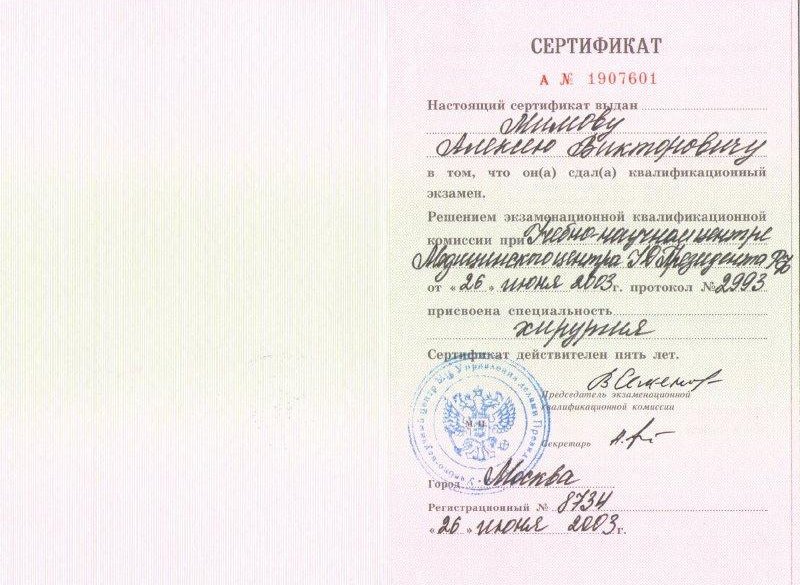 СЕРТИФИКАТ
А № 1907601
Настоящий сертификат выдан
Мимову
Алексею Викторовичу
в том, что он(а) сдал(а) квалификационный
экзамен.
Решением экзаменационной квалификационной
комиссии при Учебно-научном центре
Медицинского центра УД Президента РФ
от «26» июня 2003г. протокол № 2993
присвоена специальность
хирургия
Сертификат действителен пять лет.
В Семенов
Председатель экзаменационной
квалификационной комиссии
М.П.
Секретарь
Город Москва
Регистрационный № 8734
«26» июня 2003г.